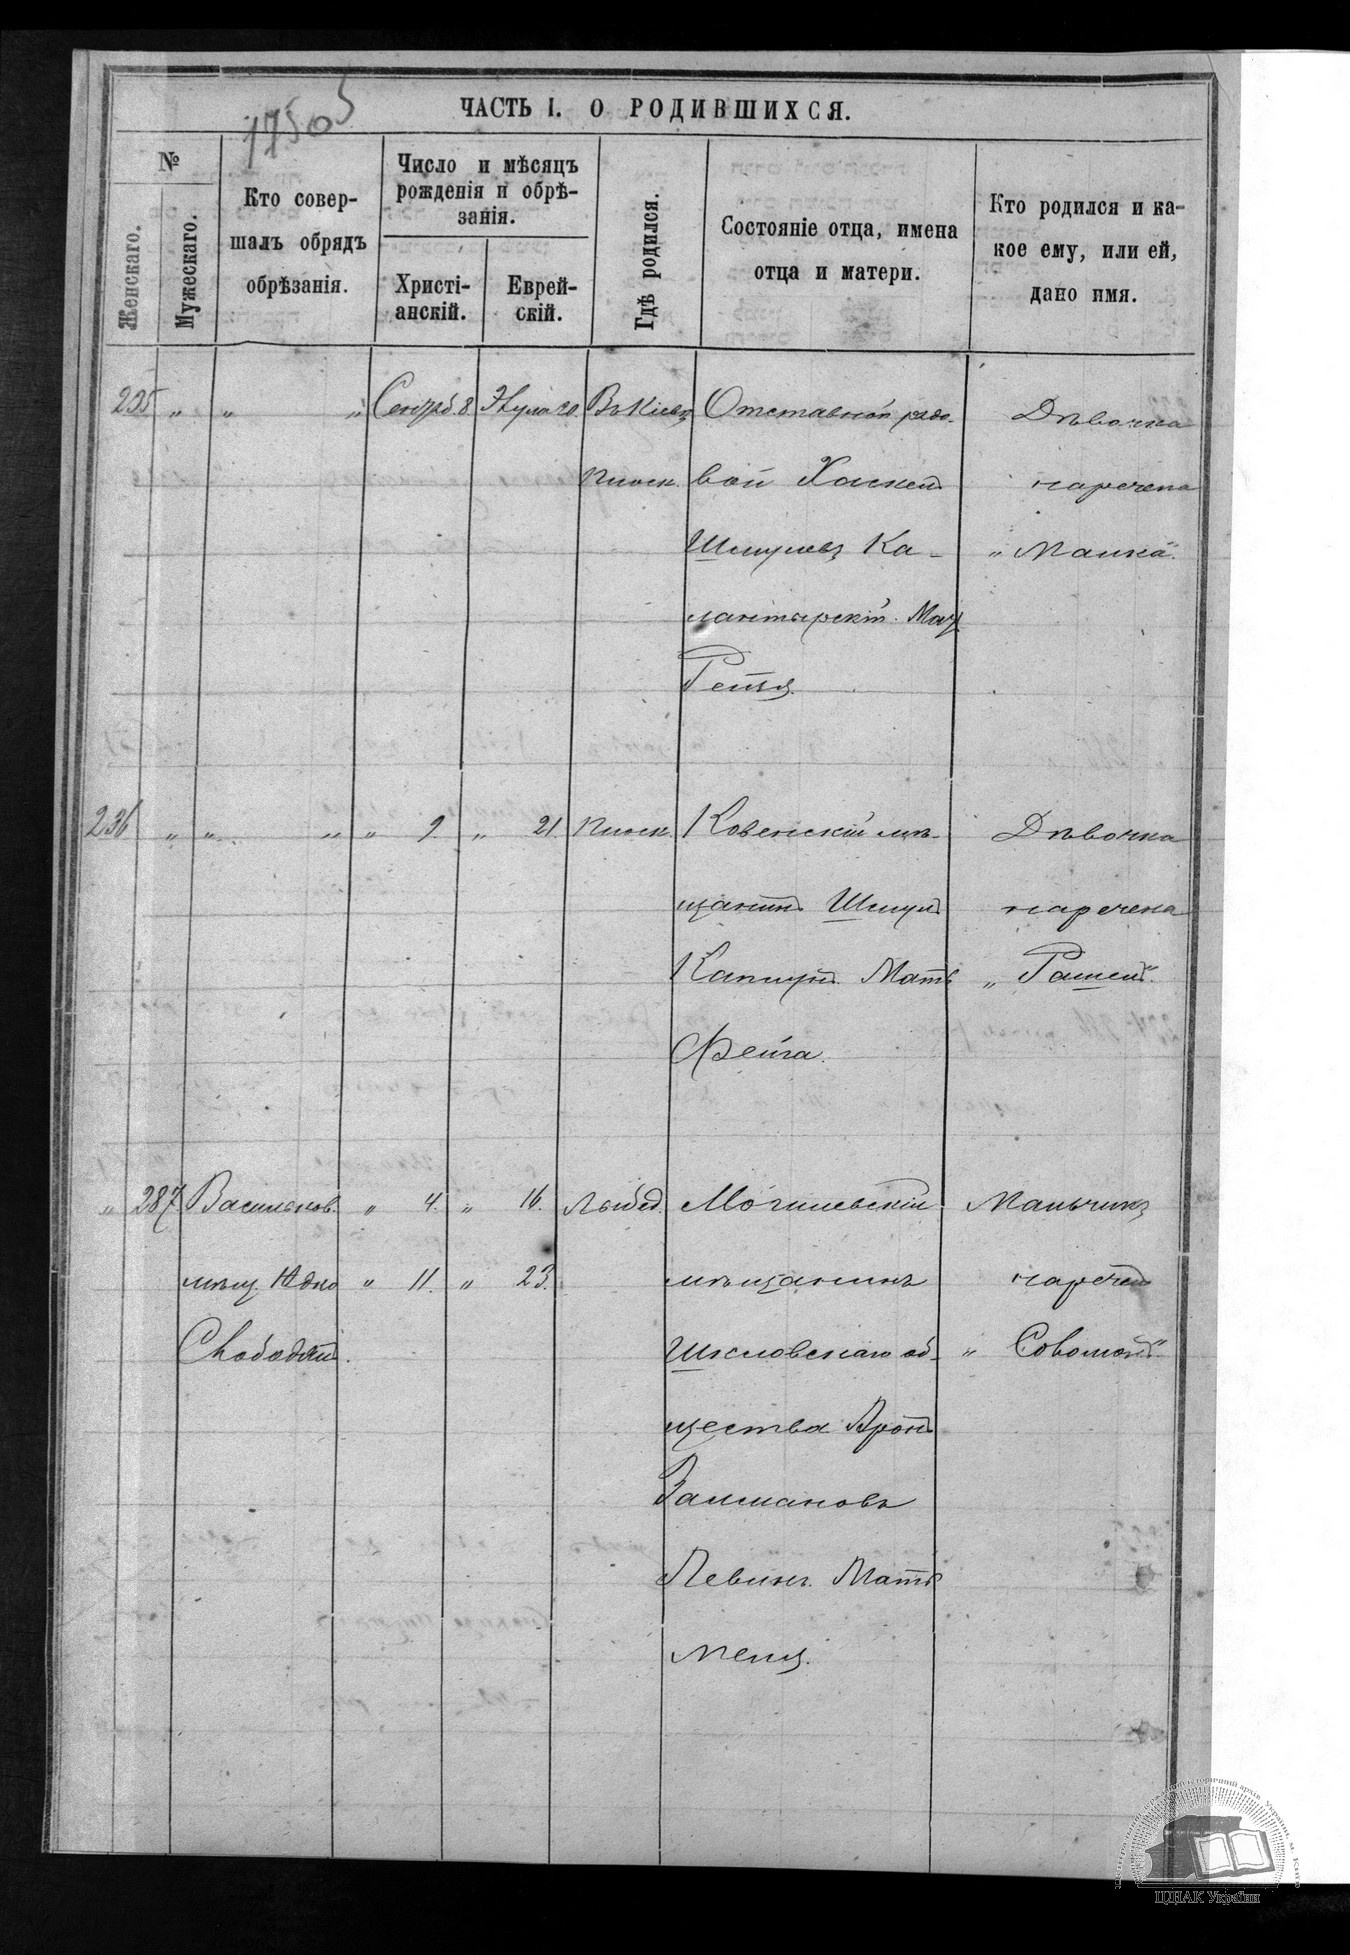 17505
ЧАСТЬ I. О РОДИВШИХСЯ.
№
Женскаго.
Мужескаго.
Кто совер-
шалъ обрядъ
обрѣзанія.
Число и мѣсяцъ
рожденія и обрѣ-
занія.
Христі-
анскій.
Еврей-
скій.
Гдѣ родился.
Состояніе отца, имена
отца и матери.
Кто родился и ка-
кое ему, или ей,
дано имя.
235 „ „ „ Сентяб. 8 20. Въ Кіевѣ Отставной рядо-
Плоск. вой Хаскель
Шмулевъ Ка-
лантырскій. Мать
Рейзя.
Дѣвочка
наречена
„Малка“.
236 „ „ „ „ 9 „ 21 Плоск. Ковенскій мѣ-
щанинъ Шмуль
Капланъ. Мать
Фейга.
Дѣвочка
наречена
„Рашель“.
„ 287 Васильков. „ 4. „ 16. Лыбед. Могилевскій
мѣщ. Юдко „ 11. „ 23. мѣщанинъ
Свободянъ. Шкловскаго об-
щества Аронъ
Залмановъ
Левинъ. Мать
Меня.
Мальчикъ
нареченъ
„Соломонъ“.
ЦДІАК України